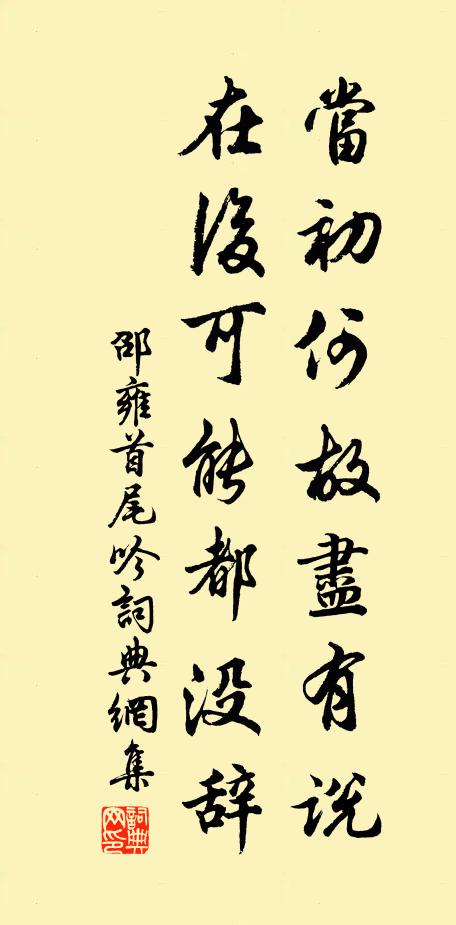 當初何故盡有說
在後可能都没辞
邵雍首尾吟詞典網集
詞典網印